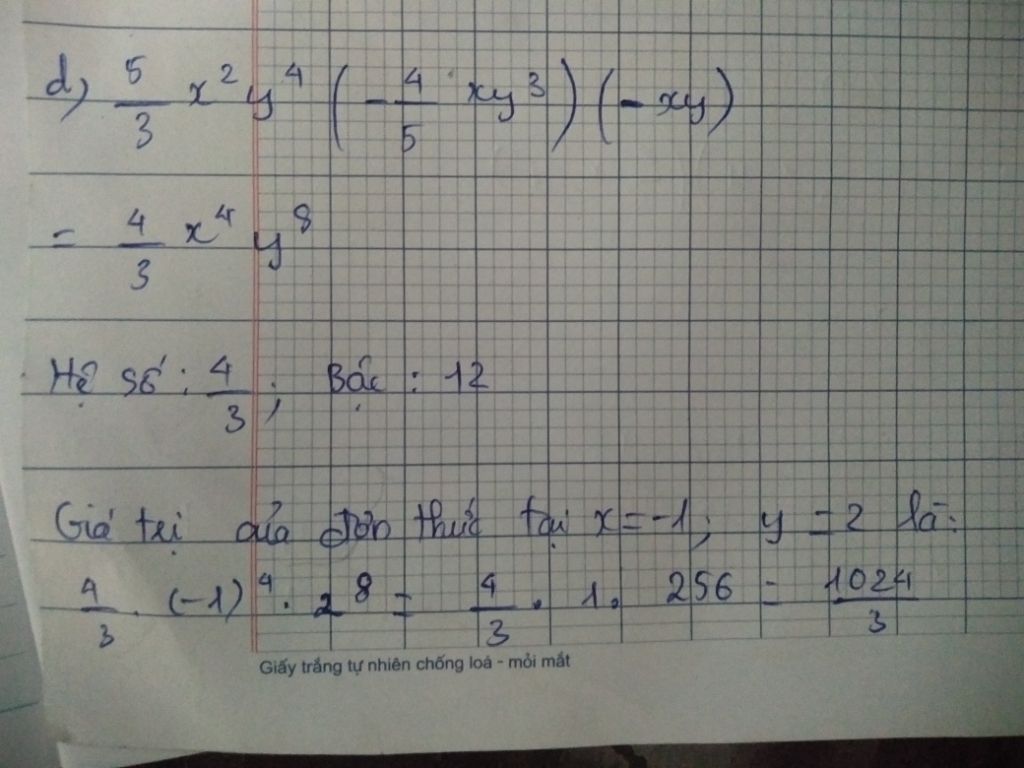 d) 5/3 x² y⁴ (-4/5 xy³) (-xy)
= 4/3 x⁴ y⁸
Hệ số : 4/3 ; Bậc : 12
Giá trị của đơn thức tại x = -1; y = 2 là:
4/3 . (-1)⁴ . 2⁸ = 4/3 . 1 . 256 = 1024/3
Giấy trắng tự nhiên chống loá - mỏi mắt